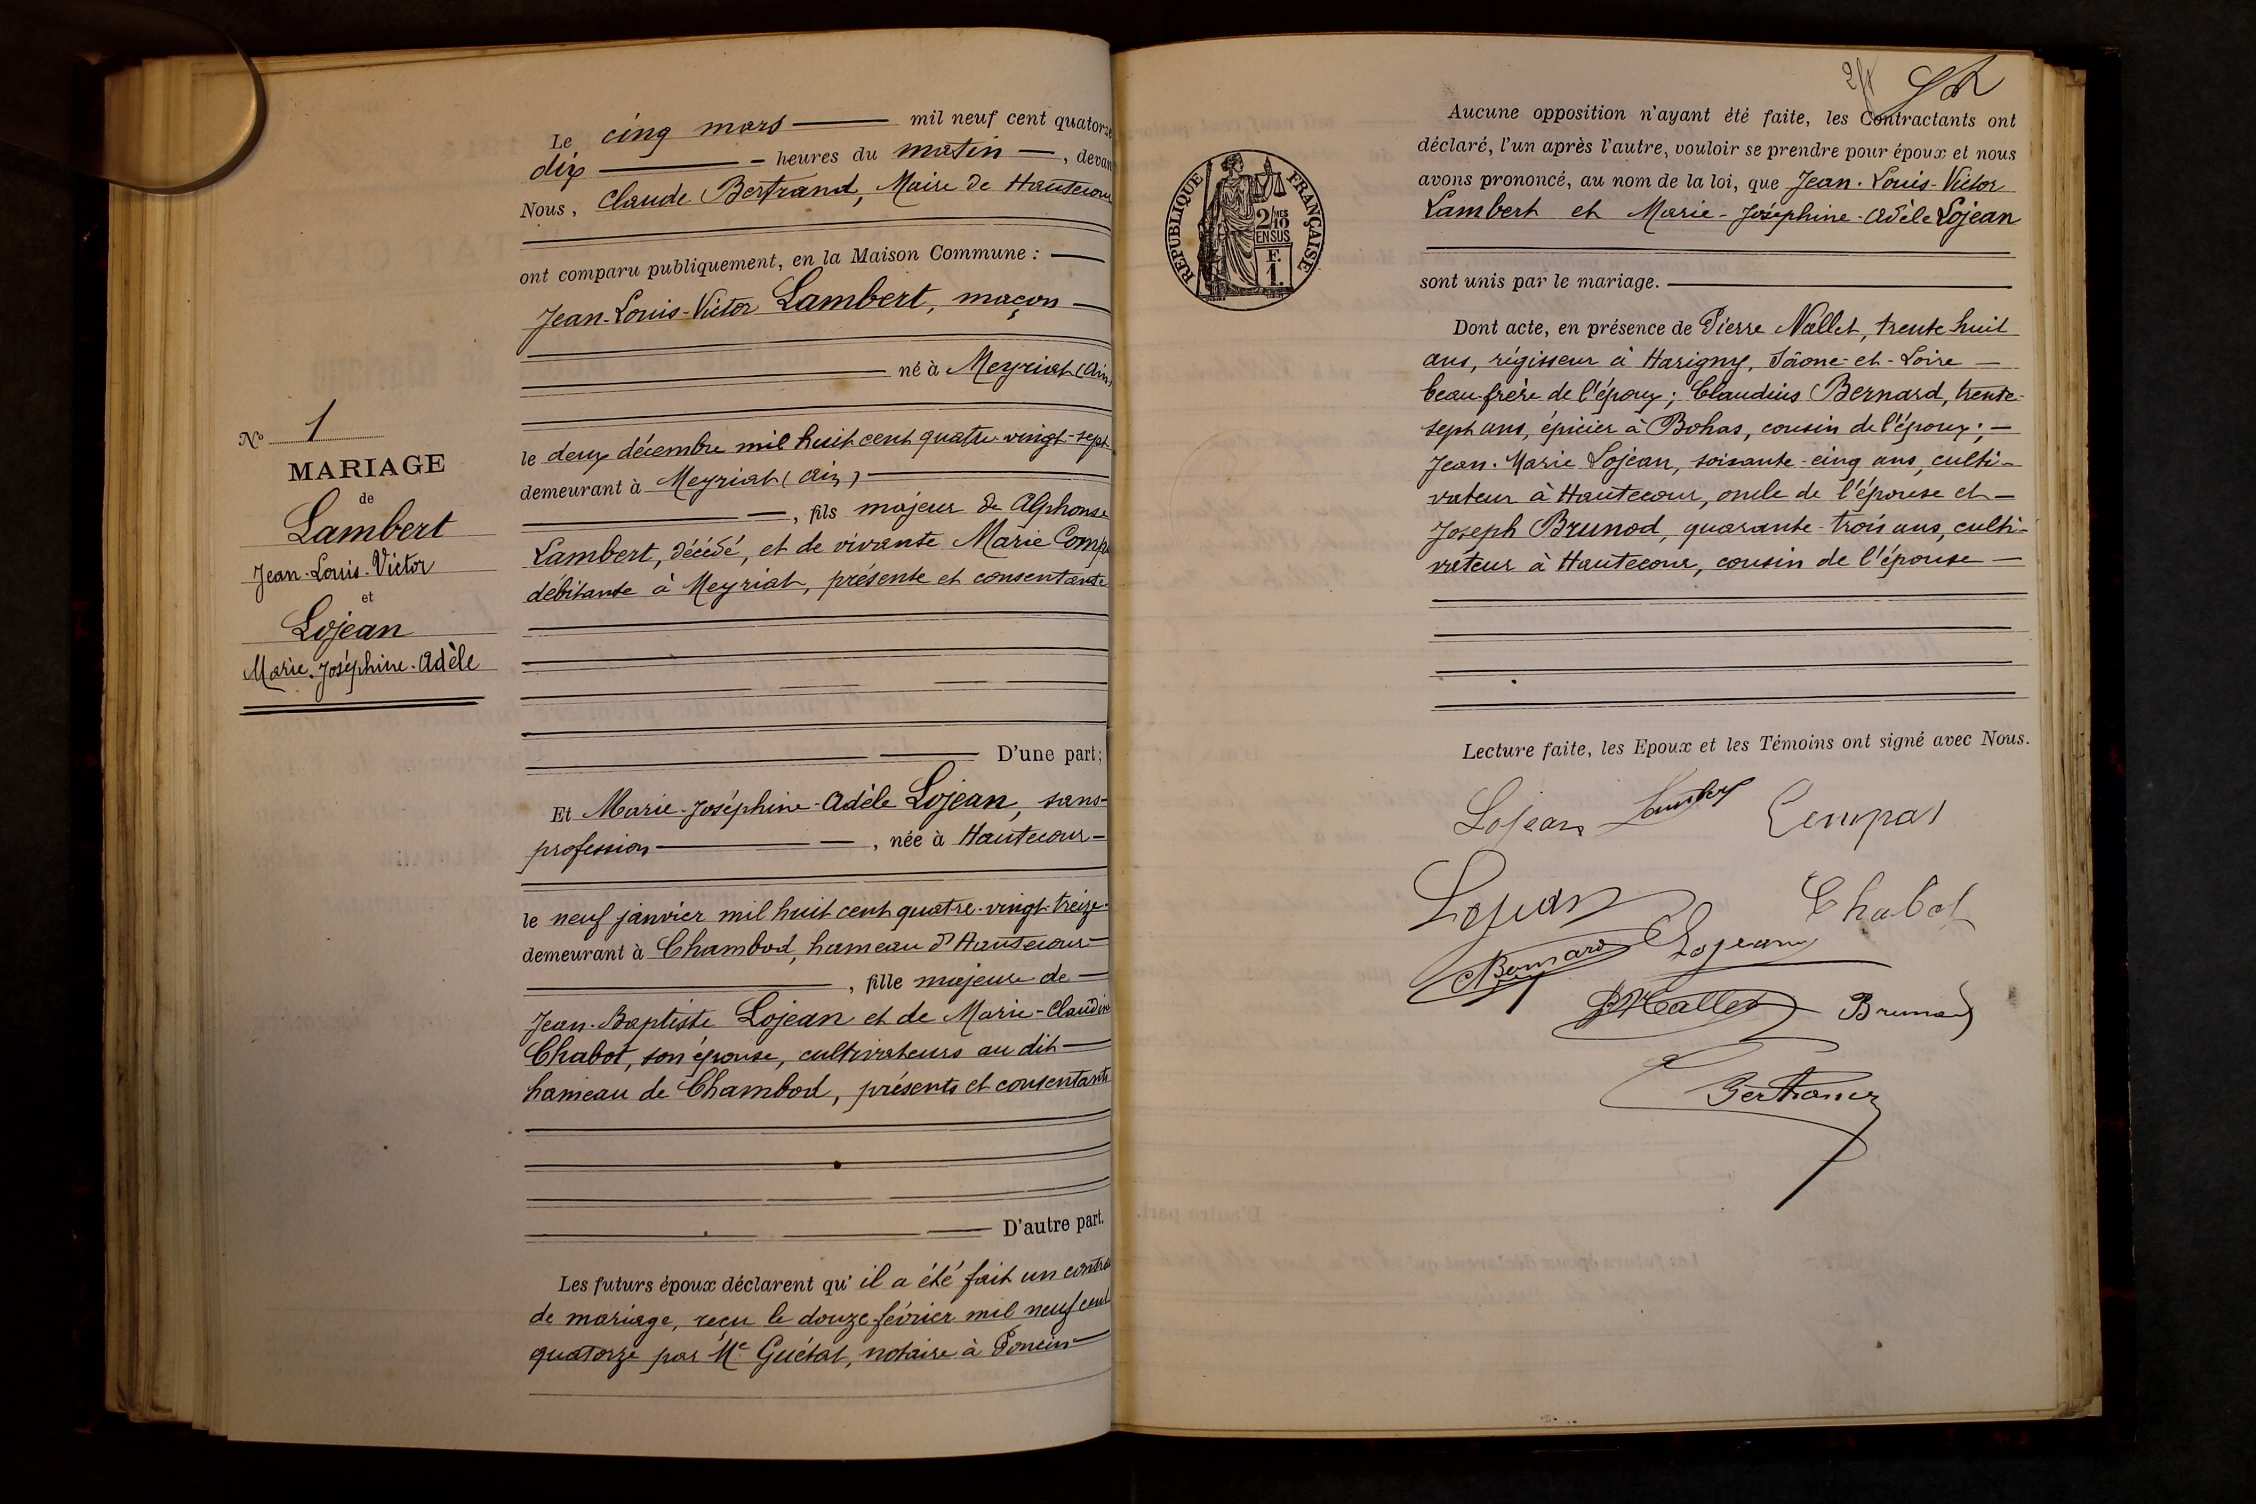 N° 1
MARIAGE
de
Lambert
Jean-Louis-Victor
et
Lojean
Marie-Joséphine-Adèle
Le cinq mars mil neuf cent quatorze
dix heures du matin, devan
Nous, Claude Bertrand, Maire de Hautecour
ont comparu publiquement, en la Maison Commune :
Jean-Louis-Victor Lambert, maçon
né à Meyriat (Ain)
le deux décembre mil huit cent quatre-vingt-sept
demeurant à Meyriat (Ain)
, fils majeur de Alphonse
Lambert, décédé, et de vivante Marie Comp
débitante à Meyriat, présente et consentante
D'une part;
Et Marie-Joséphine-Adèle Lojean, sans
profession, née à Hautecour
le neuf janvier mil huit cent quatre-vingt-treize
demeurant à Chambod, hameau d'Hautecour
, fille majeure de
Jean-Baptiste Lojean et de Marie-Claudine
Chabot, son épouse, cultivateurs au dit
hameau de Chambod, présents et consentants
D'autre part.
Les futurs époux déclarent qu'il a été fait un contrat
de mariage, reçu le douze février mil neuf cent
quatorze par Me Guétat, notaire à Poncin
RÉPUBLIQUE FRANÇAISE
2/10 MES
EN SUS
F.
1.
Aucune opposition n'ayant été faite, les Contractants ont
déclaré, l'un après l'autre, vouloir se prendre pour époux et nous
avons prononcé, au nom de la loi, que Jean-Louis-Victor
Lambert et Marie-Joséphine-Adèle Lojean
sont unis par le mariage.
Dont acte, en présence de Pierre Nallet, trente huit
ans, régisseur à Harigny, Saône-et-Loire
beau-frère de l'époux; Claudius Bernard, trente-
sept ans, épicier à Bohas, cousin de l'époux;
Jean-Marie Lojean, soixante-cinq ans, culti-
vateur à Hautecour, oncle de l'épouse et
Joseph Brunod, quarante-trois ans, culti-
vateur à Hautecour, cousin de l'épouse
Lecture faite, les Epoux et les Témoins ont signé avec Nous.
Lojean Lambert Compas
Lojean Chabot
CBernard Lojean
PNallet Brunod
Bertrand